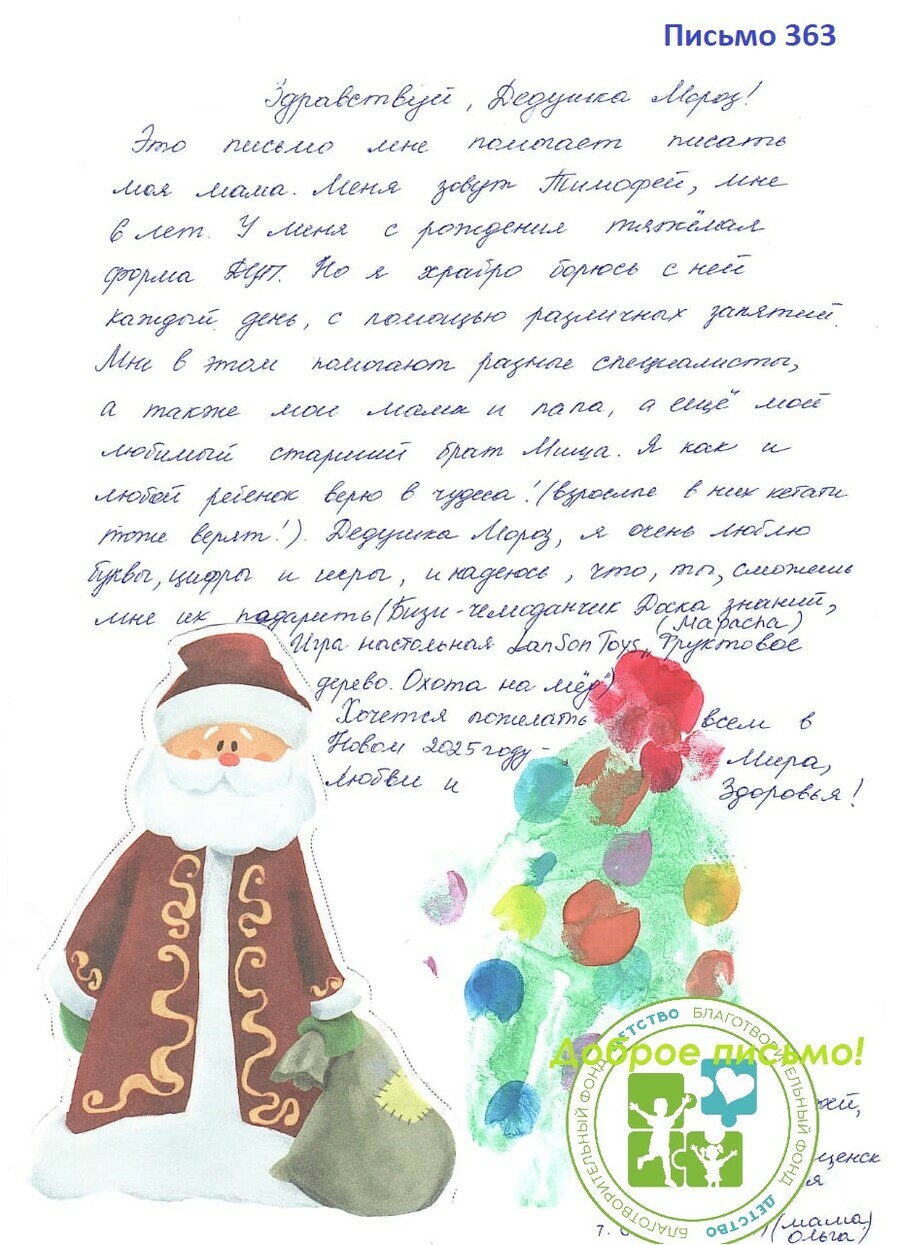 Письмо 363
Здравствуй, Дедушка Мороз!
Это письмо мне помогает писать
моя мама. Меня зовут Тимофей, мне
6 лет. У меня с рождения тяжёлая
форма ДЦП. Но я храбро борюсь с ней
каждый день, с помощью различных занятий.
Мне в этом помогают разные специалисты,
а также мои мама и папа, а ещё мой
любимый старший брат Миша. Я как и
любой ребенок верю в чудеса! (взрослые в них кстати
тоже верят!). Дедушка Мороз, я очень люблю
буквы, цифры и игры, и надеюсь, что, ты, сможешь
мне их подарить (Бизи-чемоданчик Доска знаний,
(Мараспа)
Игра настольная LanSon Toys „Фруктовое
дерево. Охота на мёд")
Хочется пожелать всем в
Новом 2025 году - Мира,
Любви и Здоровья!
Доброе письмо!
БЛАГОТВОРИТЕЛЬНЫЙ ФОНД ДЕТСТВО БЛАГОТВОРИТЕЛЬНЫЙ ФОНД ДЕТСТВО
щенск
т.
(мама
Ольга)